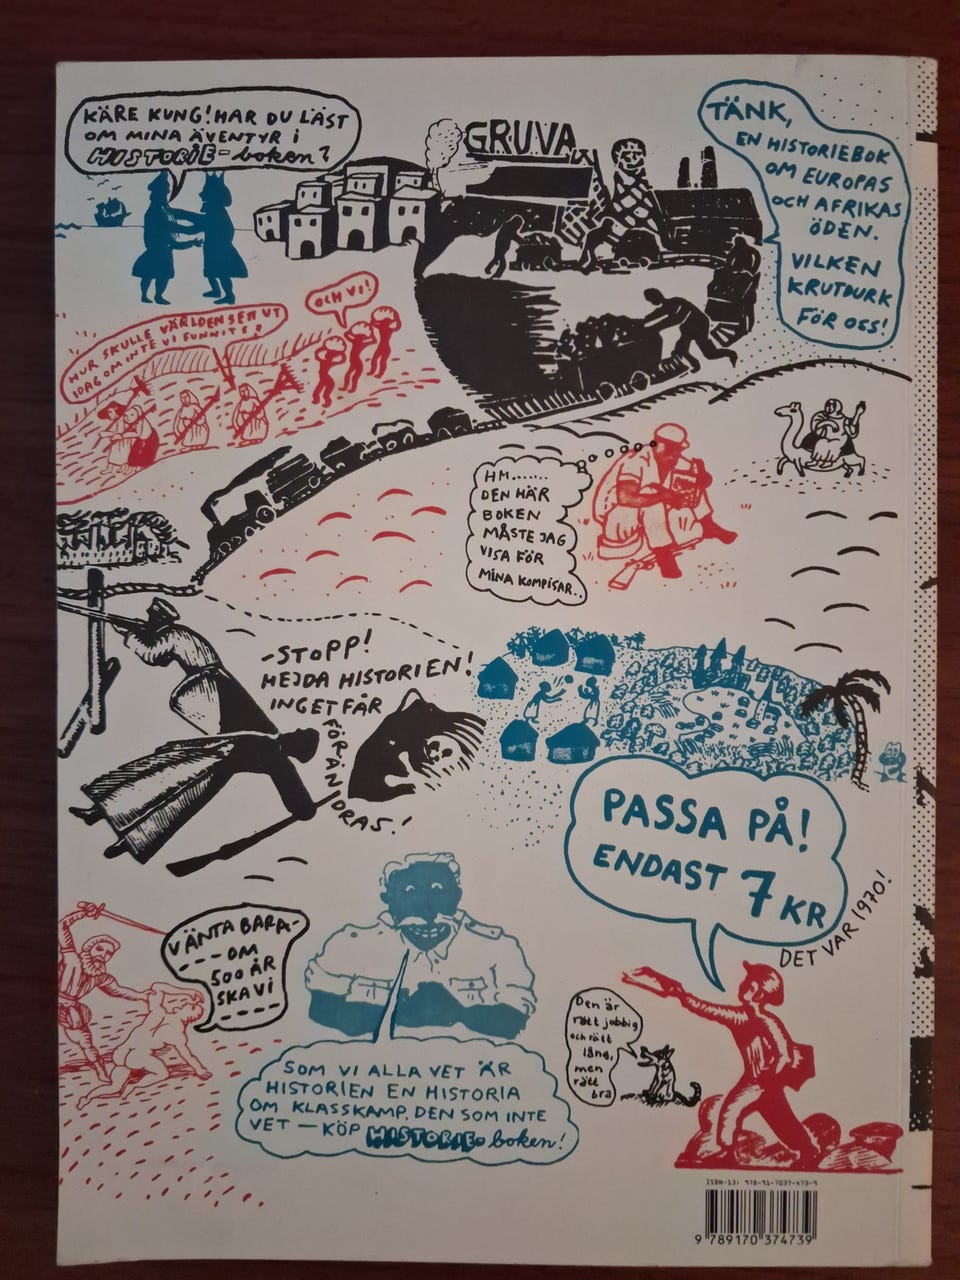 KÄRE KUNG! HAR DU LÄST
OM MINA ÄVENTYR I
HISTORIE-boken?
GRUVA
TÄNK,
EN HISTORIEBOK
OM EUROPAS
OCH AFRIKAS
ÖDEN.
VILKEN
KRUTDURK
FÖR OSS!
HUR SKULLE VÄRLDEN SETT UT
IDAG OM INTE VI FUNNITS?
OCH VI!
HM.......
DEN HÄR
BOKEN
MÅSTE JAG
VISA FÖR
MINA KOMPISAR..
-STOPP!
HEJDA HISTORIEN!
INGET FÅR
FÖRÄNDRAS!
PASSA PÅ!
ENDAST 7 KR
DET VAR 1970!
VÄNTA BARA-
--- OM
500 ÅR
SKA VI
----
Den är
rätt jobbig
och rätt
lång,
men
rätt
bra
SOM VI ALLA VET ÄR
HISTORIEN EN HISTORIA
OM KLASSKAMP. DEN SOM INTE
VET — KÖP HISTORIE-boken!
ISBN-13: 978-91-7037-473-9
9 789170 374739